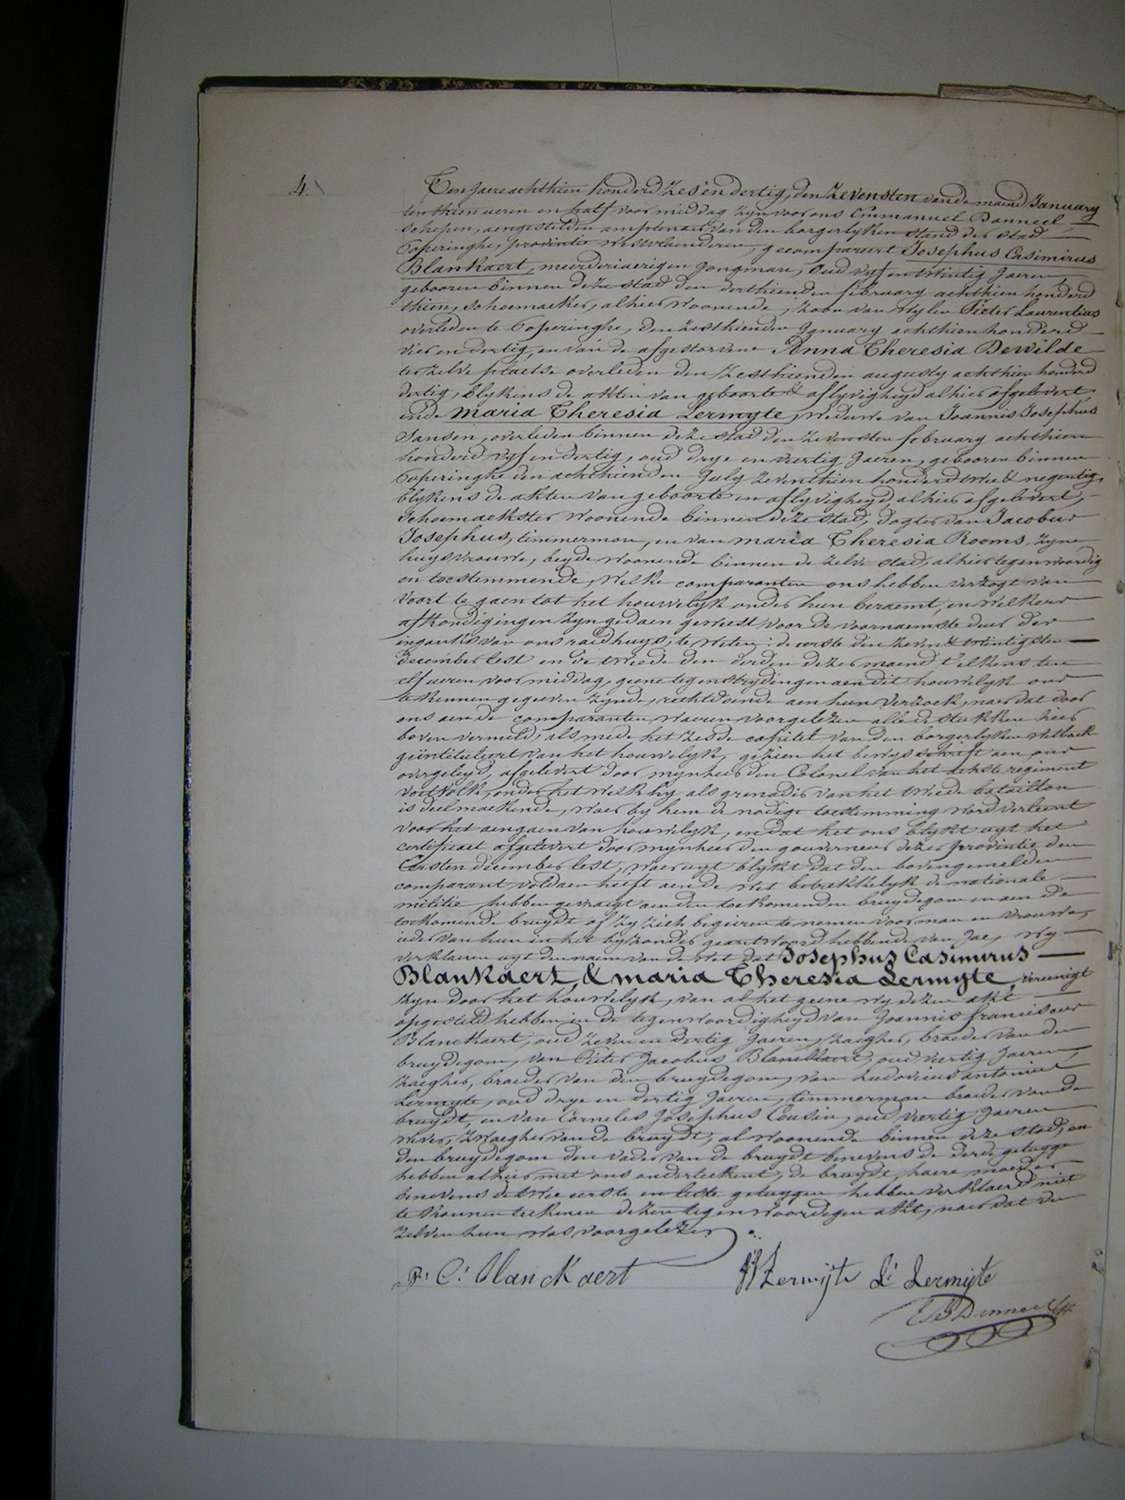 4.
Ten jaere achthien honderd zes en dertig, den zevensten van de maend January
ten thien ueren en half voor middag zyn voor ons Emmanuel Danneel
schepen, aengestelden amptenaer van den borgerlyken stand der stad
Poperinghe, provintie Westvlaenderen, gecompareert Josephus Casimirus
Blankaert, meerderjaerigen jongman, oud vyf en twintig jaeren,
gebooren binnen deze stad den derthienden february achthien honderd
thien, schoenmaeker, alhier woonende, zoon van wylen Pieter Laurentius
overleden te Poperinghe, den zesthienden January achthien honderd
vier en dertig, en van de afgestorvene Anna Theresia Dewilde
ter zelve plaetse overleden den zesthienden augusty achthien honderd
dertig, blykens de akten van geboorte & aflyvigheyd alhier afgelevert,
ende Maria Theresia Lermyte, weduwe van Joannes Josephus
Jansen, overleden binnen deze stad den zevensten february achthien
honderd vyf en dertig, oud drye en veertig jaeren, gebooren binnen
Poperinghe den achthienden July zeventhien honderd twee & negentig,
blykens de akten van geboorte en aflyvigheyd alhier afgelevert,
schoenmaekster woonende binnen deze stad, dogter van Jacobus
Josephus, timmerman, en van Maria Theresia Rooms, zyne
huysvrouwe, beyde woonende binnen de zelve stad, alhier tegenwoordig
en toestemmende, welke comparanten ons hebben verzogt van
voort te gaen tot het houwelyk onder hun beraemt, en welkers
afkondigingen zyn gedaen geweest voor de voornaemste deur der
ingank van ons raedhuys, te weten: de eerste den zeven & twintigsten
december lest en de tweede den derden dezer maend t'elkens ten
elf ueren voor middag, geene tegenstrydingen aen dit houwelyk ons
te kennen gegeven zynde, rechtdoende aen hun verzoek, naer dat door
ons aen de comparanten waeren voorgelezen alle de stukken hier
boven vermeld, als mede het zesde capittel van den borgerlyken wetboek
geïntituleert van het houwelyk, gezien het bewysschrift aen ons
overgelegd, afgelevert door mynheer den Colonel van het achtste regiment
voetvolk, onder het welk hy als grenadier van het tweede bataillon
is deel maekende, waer by hem de nodige toestemming word verleent
voor het aengaen van houwelyk, en dat het ons blykt uyt het
certificaet afgelevert door mynheer den gouverneur dezer provintie den
eersten december lest, waer uyt blykt dat den bovengemelden
comparant voldaen heeft aen de wet betrekkelyk de nationale
militie hebben gevraegt aen den toekomenden bruydegom en aen de
toekomende bruydt of zy zich begeiren te nemen voor man en vrouwe,
ieder van hun in het byzonder geantwoord hebbende van jae, wy
verklaeren uyt den naem van de wet dat Josephus Casimirus
Blankaert, & Maria Theresia Lermyte, vereenigt
zyn door het houwelyk, van al het geene wy dezen akt
opgesteld hebben in de tegenwoordigheyd van Joannes franciscus
Blanckaert, oud zeven en dertig jaeren, zaegher, broeder van den
bruydegom, van Pieter Jacobus Blanckaert, oud veertig jaeren,
zaegher, broeder van den bruydegom, van Ludovicus antonius
Lermyte, oud drye en dertig jaeren, timmerman broeder van de
bruydt, en van Cornelis Josephus Cousin, oud veertig jaeren
wever, zwaegher van de bruydt, al woonende binnen deze stad, en
den bruydegom den vader van de bruydt benevens de derde getuyge
hebben alhier met ons onderteekent, de bruydt, haere moeder
benevens de twee eerste en leste getuygen hebben verklaerd niet
te konnen teekenen dezen tegenwoordigen akt, naer dat den
zelven hun was voorgelezen
C. Blanckaert Lermijte L. Lermijte
Danneel